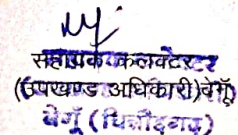 सहायक कलक्टर
(उपखण्ड अधिकारी)वेगूँ
वेगूँ (चित्तौड़गढ़)